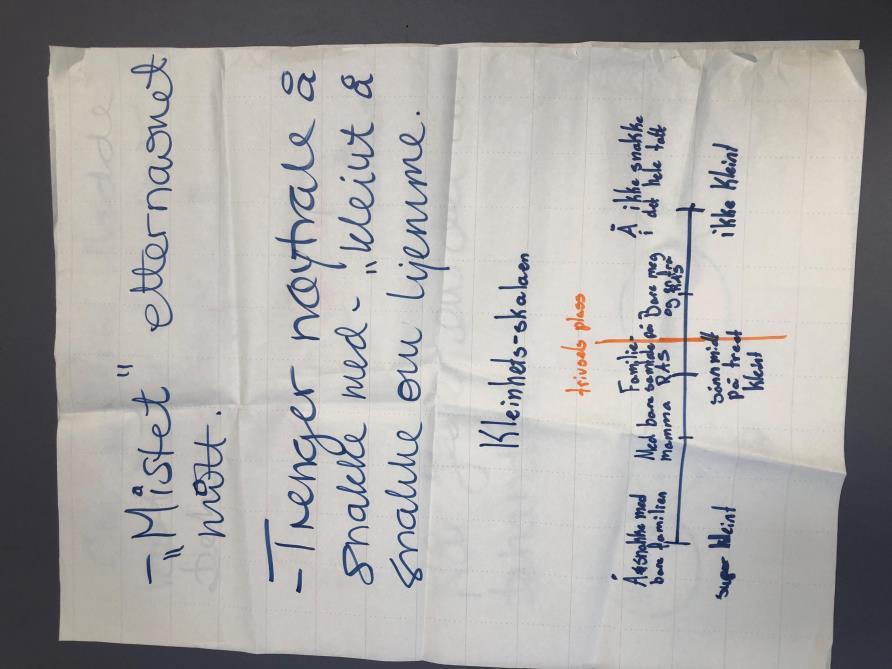 - "Mistet" etternavnet
mitt.
- Trenger nøytrale å
snakke med - "kleint å
snakke om hjemme.
Kleinhets-skalaen
trivsels plass
Å snakke med
bare familien
Med bare
mamma
Familie-
samtale på
RAS
Bare meg
og
RAS
Å ikke snakke
i det hele tatt
super kleint
Sånn midt
på treet
kleint
ikke kleint